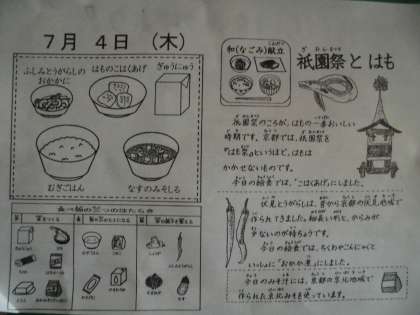 7月 4日 (木)
ふしみとうがらしの
おかかに
はものこはくあげ
ぎゅうにゅう
むぎごはん
なすのみそしる
和(なごみ)献立
祇園祭と はも
ぎ おんまつり
祇園祭のころが、はもの一番おいしい
時期です。京都では、祇園祭を
「はも祭」というほど、はもは
かかせないものです。
今日の給食では、「こはくあげ」にしました。
伏見とうがらしは、昔から京都の伏見地域で
作られてきました。細長い形と、からみが
少ないのが特ちょうです。
今日の給食では、ちくわやこんにゃくと
いっしょに「おかか煮」にしました。
今日のみそ汁には、京都の京北地域で
作られた京北みそを使っています。